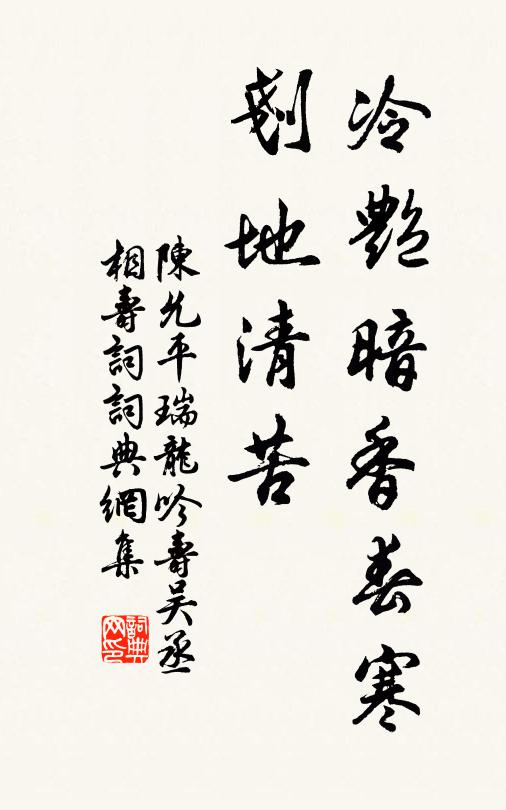 冷艷暗香春寒
剗地清苦
陳允平瑞龍吟壽吳丞
相壽詞詞典網集
詞典
网印